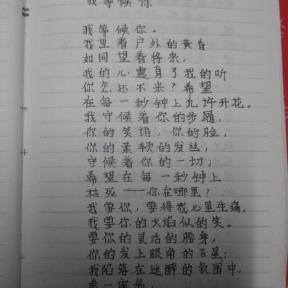 我等候你
我等候你。
我望着户外的黄昏
如同望着将来，
我的心震盲了我的听
你怎还不来？希望
在每一秒钟上允许开花。
我守候着你的步履，
你的笑语，你的脸，
你的柔软的发丝，
守候着你的一切；
希望在每一秒钟上
枯死——你在哪里？
我要你，要得我心里生痛，
我要你的火焰似的笑，
要你的灵活的腰身，
你的发上眼角的飞星；
我陷落在迷醉的氛围中，